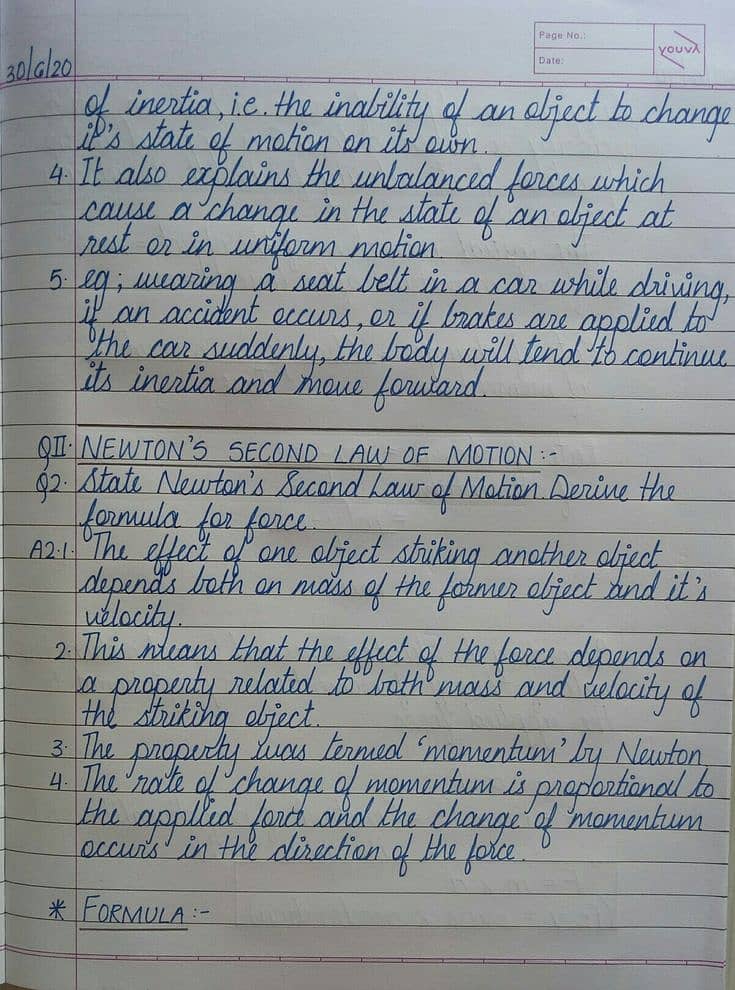 Page No.:
youva
Date:
30/6/20
of inertia, i.e. the inability of an object to change
it's state of motion on its own.
4. It also explains the unbalanced forces which
cause a change in the state of an object at
rest or in uniform motion.
5. eg; wearing a seat belt in a car while driving,
if an accident occurs, or if brakes are applied to
the car suddenly, the body will tend to continue
its inertia and move forward.
QII. NEWTON'S SECOND LAW OF MOTION :-
Q2. State Newton's Second Law of Motion. Derive the
formula for force.
A2.1. The effect of one object striking another object
depends both on mass of the former object and it's
velocity.
2. This means that the effect of the force depends on
a property related to both mass and velocity of
the striking object.
3. The property was termed 'momentum' by Newton.
4. The rate of change of momentum is proportional to
the applied force and the change of momentum
occurs in the direction of the force.
* FORMULA :-